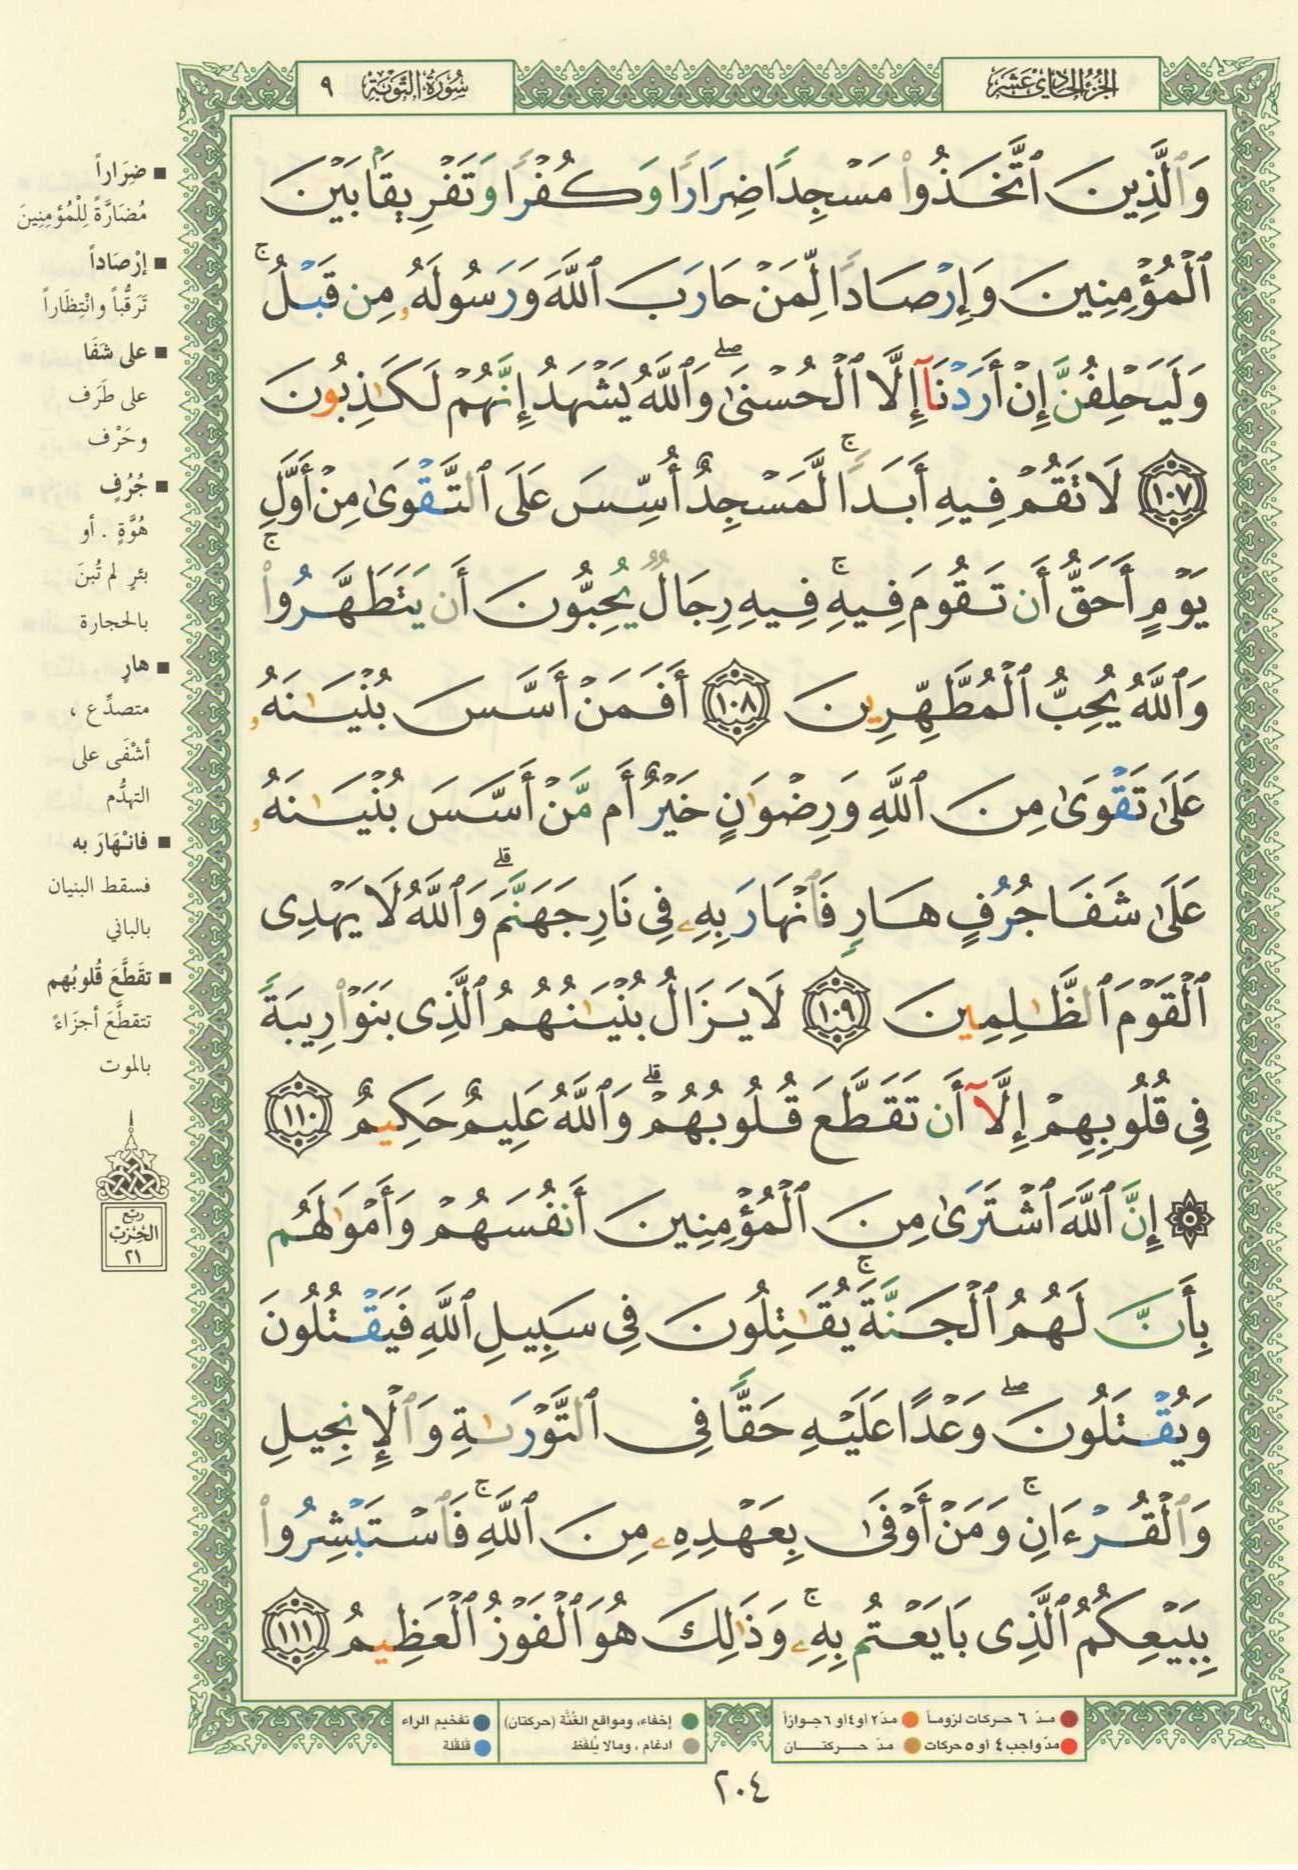 الجزء الحادي عشر
سورة التوبة ٩
وَٱلَّذِينَ ٱتَّخَذُوا۟ مَسْجِدًا ضِرَارًا وَكُفْرًا وَتَفْرِيقًۢا بَيْنَ
ٱلْمُؤْمِنِينَ وَإِرْصَادًا لِّمَنْ حَارَبَ ٱللَّهَ وَرَسُولَهُۥ مِن قَبْلُ ۚ
وَلَيَحْلِفُنَّ إِنْ أَرَدْنَآ إِلَّا ٱلْحُسْنَىٰ ۖ وَٱللَّهُ يَشْهَدُ إِنَّهُمْ لَكَـٰذِبُونَ
١٠٧ لَا تَقُمْ فِيهِ أَبَدًا ۚ لَّمَسْجِدٌ أُسِّسَ عَلَى ٱلتَّقْوَىٰ مِنْ أَوَّلِ
يَوْمٍ أَحَقُّ أَن تَقُومَ فِيهِ ۚ فِيهِ رِجَالٌ يُحِبُّونَ أَن يَتَطَهَّرُوا۟ ۚ
وَٱللَّهُ يُحِبُّ ٱلْمُطَّهِّرِينَ ١٠٨ أَفَمَنْ أَسَّسَ بُنْيَـٰنَهُۥ
عَلَىٰ تَقْوَىٰ مِنَ ٱللَّهِ وَرِضْوَٰنٍ خَيْرٌ أَم مَّنْ أَسَّسَ بُنْيَـٰنَهُۥ
عَلَىٰ شَفَا جُرُفٍ هَارٍ فَٱنْهَارَ بِهِۦ فِى نَارِ جَهَنَّمَ ۗ وَٱللَّهُ لَا يَهْدِى
ٱلْقَوْمَ ٱلظَّـٰلِمِينَ ١٠٩ لَا يَزَالُ بُنْيَـٰنُهُمُ ٱلَّذِى بَنَوْا۟ رِيبَةً
فِى قُلُوبِهِمْ إِلَّآ أَن تَقَطَّعَ قُلُوبُهُمْ ۗ وَٱللَّهُ عَلِيمٌ حَكِيمٌ ١١٠
۞ إِنَّ ٱللَّهَ ٱشْتَرَىٰ مِنَ ٱلْمُؤْمِنِينَ أَنفُسَهُمْ وَأَمْوَٰلَهُم
بِأَنَّ لَهُمُ ٱلْجَنَّةَ ۚ يُقَـٰتِلُونَ فِى سَبِيلِ ٱللَّهِ فَيَقْتُلُونَ
وَيُقْتَلُونَ ۖ وَعْدًا عَلَيْهِ حَقًّا فِى ٱلتَّوْرَىٰةِ وَٱلْإِنجِيلِ
وَٱلْقُرْءَانِ ۚ وَمَنْ أَوْفَىٰ بِعَهْدِهِۦ مِنَ ٱللَّهِ ۚ فَٱسْتَبْشِرُوا۟
بِبَيْعِكُمُ ٱلَّذِى بَايَعْتُم بِهِۦ ۚ وَذَٰلِكَ هُوَ ٱلْفَوْزُ ٱلْعَظِيمُ ١١١
■ ضِرَاراً
مُضَارَّةً لِلْمُؤمِنِينَ
■ إرْصَاداً
تَرَقُّباً وانْتِظَاراً
■ على شَفَا
على طَرَف
وحَرْف
■ جُرُفٍ
هُوَّةٍ . أو
بئرٍ لم تُبنَ
بالحجارة
■ هارٍ
متصدِّع ،
أشْفَى على
التهدُّم
■ فانْهَارَ به
فسقط البنيان
بالباني
■ تقَطَّعَ قُلوبُهم
تتقطَّعَ أجزَاءً
بالموت
ربع
الحزب
٢١
مدّ ٦ حركات لزوماً
مدّ ٢ أو ٤ أو ٦ جوازاً
مدّ واجب ٤ أو ٥ حركات
مدّ حركتان
إخفاء، ومواقع الغُنَّة (حركتان)
ادغام ، ومالا يُلفَظ
تفخيم الراء
قلقلة
٢٠٤